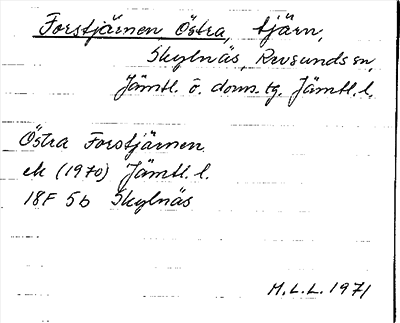 Forstjärnen, Östra, tjärn,
Skylnäs, Revsunds sn,
Jämtl. ö. doms. tg. Jämtl. l.
Östra Forstjärnen
ek (1970) Jämtl. l.
18F 5b Skylnäs
M.L.L. 1971